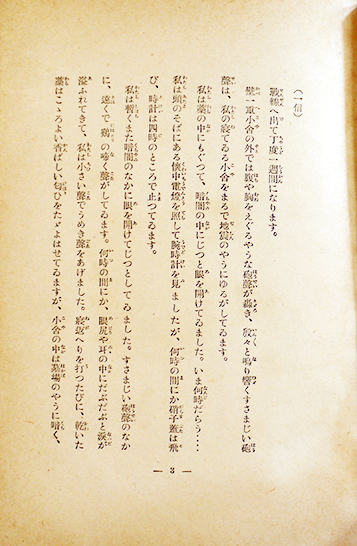 (一信)
戰線へ出て丁度一週間になります。
壁一重小舍の外では腹や胸をえぐるやうな砲聲が轟き、殷々と鳴り響くすさまじい砲
聲は、私の寢てゐる小舍をまるで地震のやうにゆるがしてゐます。
私は藁の中にもぐつて、暗闇の中にじつと眼を開けてゐました。いま何時だらう‥‥
私は頭のそばにある懷中電燈を照して腕時計を見ましたが、何時の間にか硝子蓋は飛
び、時計は四時のところで止つてゐます。
私は暫くまた暗闇のなかに眼を開けてじつとしてゐました。すさまじい砲聲のなか
に、遠くで鷄の啼く聲がしてゐます。何時の間にか、眼尻や耳の中にだぶだぶと淚が
溢ふれてきて、私は小さい聲でうめき聲をあげました。寢返へりを打つたびに、乾いた
藁はこゝろよい香ばしい匂ひをたゞよはせてゐますが、小舍の中は墓場のやうに暗く、
— 3 —